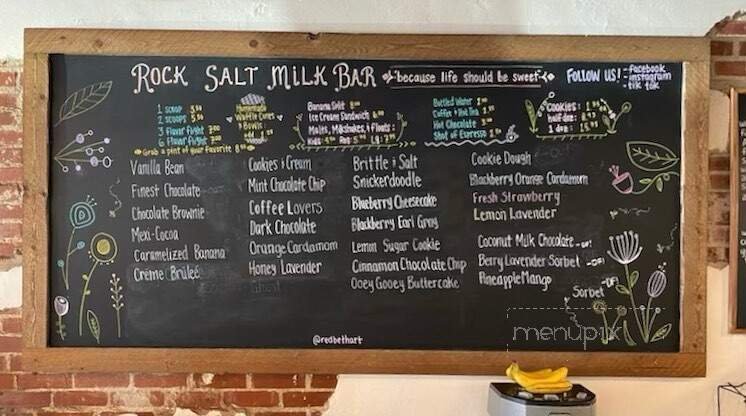 ROCK SALT MILK BAR
because life should be sweet
FOLLOW US!
- facebook
- instagram
- tik tok
1 scoop
2 scoops
3 Flavor flight
6 Flavor flight
Grab a pint of your favorite
Homemade
Waffle Cones
& Bowls
Banana Split
Ice Cream Sandwich
Malts, Milkshakes, & Floats:
Bottled Water
Coffee + Hot Tea
Hot Chocolate
Shot of Espresso
Cookies:
half doz:
1 doz:
Vanilla Bean
Finest Chocolate
Chocolate Brownie
Mexi-Cocoa
Caramelized Banana
Crème Brûleé
Cookies & Cream
Mint Chocolate Chip
Coffee Lovers
Dark Chocolate
Orange Cardamom
Honey Lavender
Brittle & Salt
Snickerdoodle
Blueberry Cheesecake
Blackberry Earl Gray
Lemon Sugar Cookie
Cinnamon Chocolate Chip
Ooey Gooey Buttercake
Cookie Dough
Blackberry Orange Cardamom
Fresh Strawberry
Lemon Lavender
Coconut Milk Chocolate -DF!
Berry Lavender Sorbet -DF!
Pineapple Mango
Sorbet -DF!
@redbethart
menupix